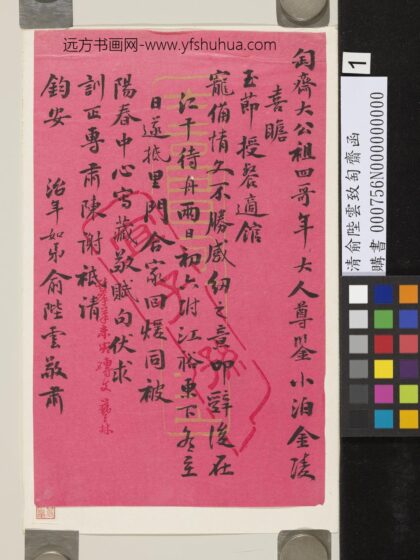 远方书画网--www.yfshuhua.com
匋齋大公祖四哥年大人尊鑒小泊金陵
喜瞻
玉節授餐適館
寵備情文不勝感紉之意叩辭後在
江干待舟兩日初六附江裕東下冬至
日遂抵里門合家回煖同被
陽春中心寫藏敬賦句伏求
訓正專肅陳謝祗請
鈞安 治年如弟俞陛雲敬肅
清俞陛雲致匋齋函
購書 000756N000000000
1